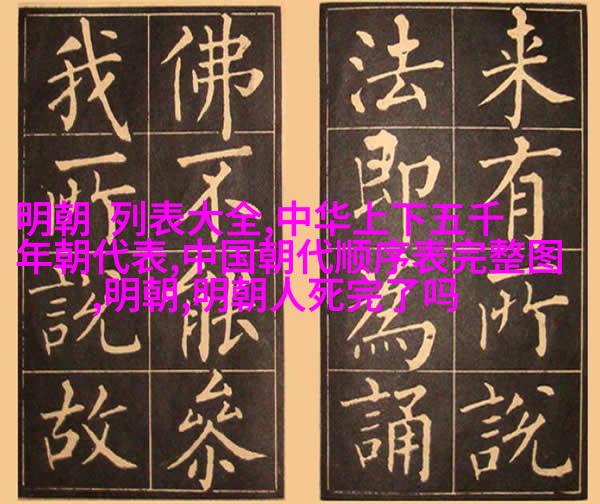 来有所説
法即為誦
佛不能叅
我所説故
明朝 列表大全,中华上下五千
年朝代表,中国朝代顺序表完整图
,明朝,明朝人死完了吗